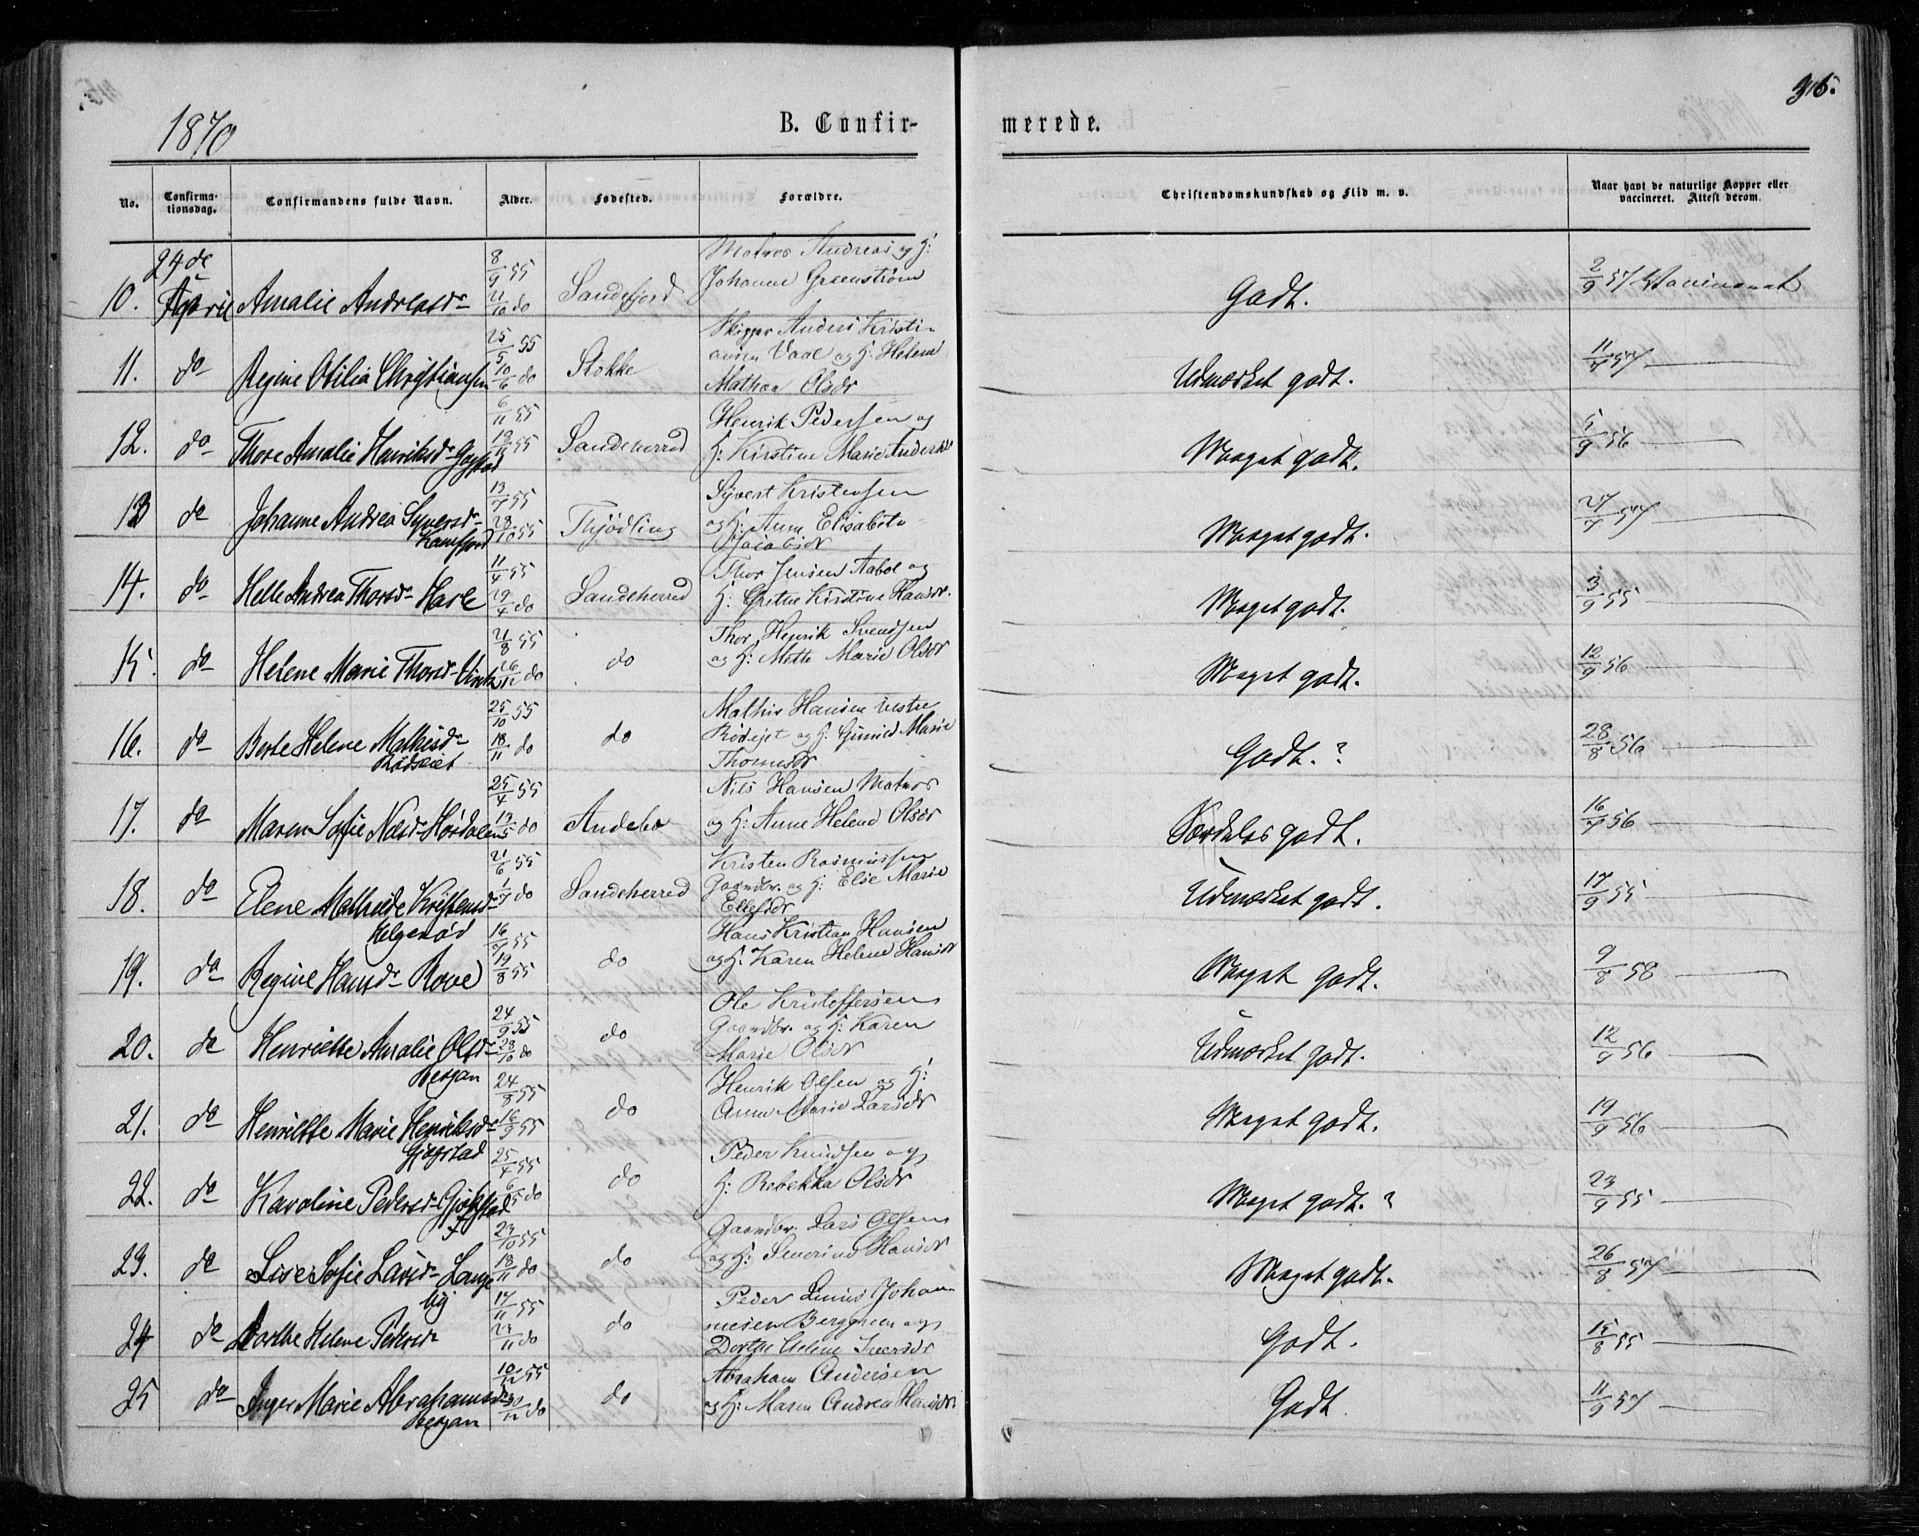 1870
B. Confir-
merede.
315.
No.
Confirma-
tionsdag.
Confirmandens fulde Navn.
Alder.
Fødested.
Forældre.
Christendomskundskab og Flid m. v.
Naar havt de naturlige Kopper eller
vaccineret. Attest derom.
24de
April
10. Amalie Andreasdr
8/9 55
21/10 do
Sandefjord
Matros Andreas og H:
Johanne Greenstrøm
Godt.
2/9 57 Vaccineret
11. do Regine Otilia Christiansen
25/5 55
10/6 do
Stokke
Skipper Anders Kristi-
ansen Vaae og H: Helene
Mathea Olsdr
Udmærket godt.
11/7 57
12. do Thore Amalie Henriksdr Gogstad
6/11 55
Sandeherred
Henrik Pedersen og
H: Kirstine Marie Andersdr
Meget godt.
5/9 56
13 do Johanne Andrea Syversdr
Kamfjord
13/7 55
28/10 55
Thjødling
Syvert Kristensen
og H: Anne Elisabeth
Jacobsdr
Meget godt.
27/7 57
14. do Helle Andrea Thorsdr Have
11/4 55
29/4 do
Sandeherred
Thor Jensen Aabol og
H: Grethe Kirstine Hansdr.
Meget godt.
3/9 55
15 do Helene Marie Thorsdr Virik
21/8 55
26/12 do
do
Thor Henrik Svendsen
og H: Mette Marie Olsdr
Meget godt.
12/9 56
16. do Berte Helene Mathisdr
Rødseiet
25/10 55
18/11 do
do
Mathis Hansen vestre
Rødsejet og H: Gunild Marie
Thomasdr
Godt. ?
28/8 56
17. do Maren Sofie Nilsdr Hørdalen
25/4 55
13/5 do
Andebo
Nils Hansen Matros
og H: Anne Helene Olsdr
Særdeles godt.
16/7 56
18. do Elene Mathilde Kristensdr
Helgerød
21/6 55
1/7 do
Sandeherred
Kristen Rasmussen
Gaardbr. og H: Else Marie
Ellefsdr
Udmærket godt.
17/9 55
19. do Regine Hansdr Rove
16/7 55
19/8 55
do
Hans Kristian Hansen
og H: Karen Helene Hansdr
Meget godt.
9/8 58
20. do Henriette Amalie Olsdr
Hesjan
24/9 55
28/10 do
do
Ole Kristoffersen
Gaardbr. og H: Karen
Marie Olsdr
Udmærket godt.
12/9 56
21. do Henriette Marie Henriksdr
Gjøgstad
24/8 55
16/9 55
do
Henrik Olsen og H:
Anne Marie Larsdr
Meget godt.
19/9 56
22. do Karoline Pedersdr Gjøgstad
25/4 55
6/5 do
do
Peder Knudsen og
H: Rebekka Olsdr
Meget godt. ?
23/9 55
23. do Lise Sofie Larsdr Lange
by
23/10 55
18/11 do
do
Gaardbr. Lars Olsen
og H: Severine Hansdr
Meget godt.
26/8 57
24 do Dorthe Helene Pedersdr
17/11 55
23/11 do
do
Peder Linius Johan-
nesen Berggreen og
Dorthe Helene Iversdr
Godt.
15/8 55
25 do Inger Marie Abrahamsdr
Hesjan
10/12 55
30/12 do
do
Abraham Andersen
og H: Maren Andrea Hansdr
Godt
11/9 57